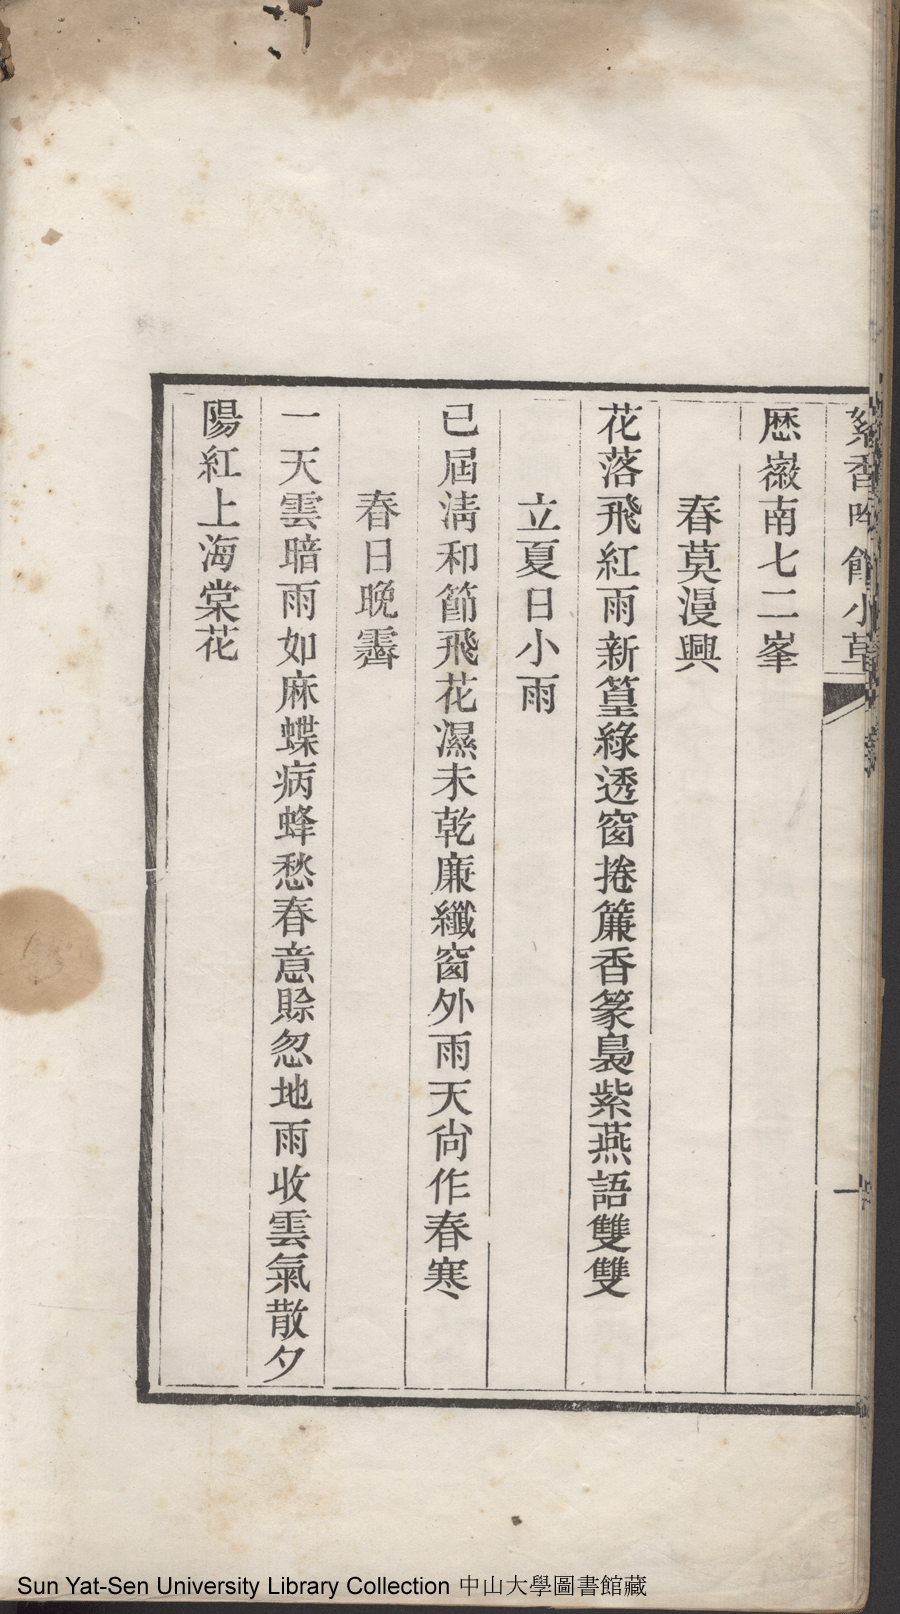 香吟館小草
歷嶶南七二峯
春莫漫興
花落飛紅雨新篁綠透窗捲簾香篆裊紫燕語雙雙
立夏日小雨
已屆淸和節飛花濕未乾廉纖窗外雨天尙作春寒
春日晚霽
一天雲暗雨如麻蝶病蜂愁春意賖忽地雨收雲氣散夕
陽紅上海棠花
一
Sun Yat-Sen University Library Collection 中山大學圖書館藏